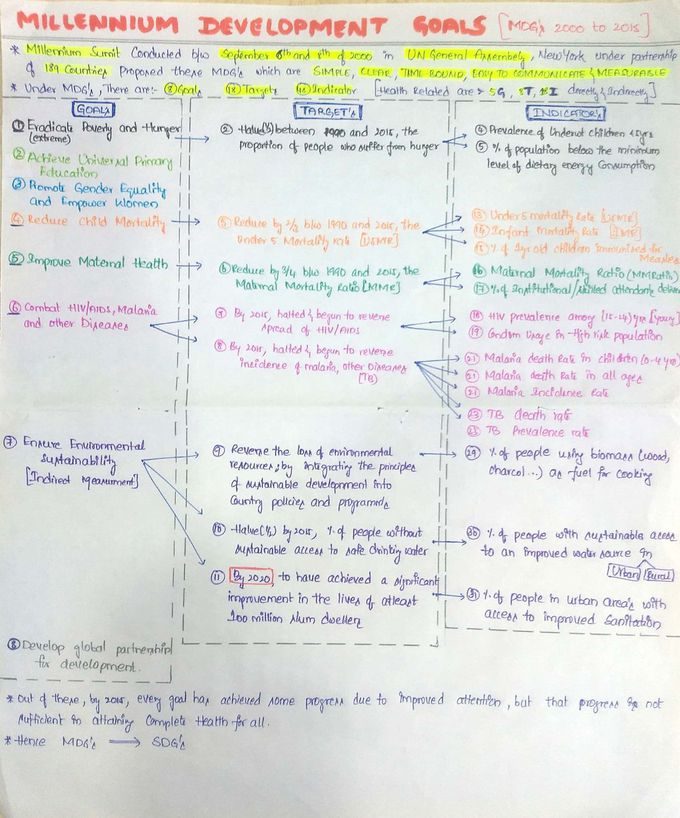 MILLENNIUM DEVELOPMENT GOALS [MDG's 2000 to 2015]
* Millennium Sumit Conducted b/w September 6th and 8th of 2000 in UN General Assembely, New York under partnership
of 189 Countries proposed these MDG's which are SIMPLE, CLEAR, TIME BOUND, EASY TO COMMUNICATE & MEASURABLE
* Under MDG's, There are:- 8 Goals Targets Indicator [Health Related are directly & Indirectly]
GOALS
① Eradicate Poverty and Hunger
(extreme)
② Achieve Universal Primary
Education
③ Promote Gender Equality
and Empower Women
④ Reduce Child Mortality
⑤ Improve Maternal Health
⑥ Combat HIV/AIDS, Malaria
and other Diseases
⑦ Ensure Environmental
Sustainability
[Indirect Measurement]
⑧ Develop global partnership
for development.
TARGET's
② Halve(½) between 1990 and 2015, the
proportion of people who suffer from hunger
⑤ Reduce by 2/3 b/w 1990 and 2015, the
Under 5 Mortality rate [U5MR]
⑥ Reduce by 3/4 b/w 1990 and 2015, the
Maternal Mortality Ratio [MMR]
By 2015, halted & begun to reverse
spread of HIV/AIDS
⑧ By 2015, halted & begun to reverse
incidence of malaria, other Diseases
[TB]
⑨ Reverse the loss of environmental
resources; by integrating the principles
of sustainable development into
Country policies and programs
⑩ Halve(½) by 2015, % of people without
sustainable access to safe drinking water
⑪ By 2020, to have achieved a significant
improvement in the lives of atleast
100 million slum dwellers
INDICATOR's
④ Prevalence of Underwt children <5yrs
⑤ % of population below the minimum
level of dietary energy Consumption
⑬ Under 5 mortality Rate [U5MR]
⑭ Infant mortality Rate [IMR]
% of 1yr old children immunised for
Measles
⑯ Maternal Mortality Ratio (MMRatio)
⑰ % of Institutional/skilled attendants
⑱ HIV prevalence among (15-24) yrs [young]
⑲ Condom Usage in High risk population
㉑ Malaria death Rate in children (0-4 yrs)
㉑ Malaria death Rate in all ages
㉑ Malaria Incidence Rate
㉓ TB death rate
㉓ TB Prevalence rate
㉙ % of people using biomass (wood,
charcol...) as fuel for cooking
㉚ % of people with sustainable access
to an improved water source in
Urban Rural
㉛ % of people in urban area's with
access to improved Sanitation
* Out of these, by 2015, every goal has achieved some progress due to improved attention, but that progress is not
sufficient in attaining Complete Health for all.
* Hence MDG's ⟹ SDG's